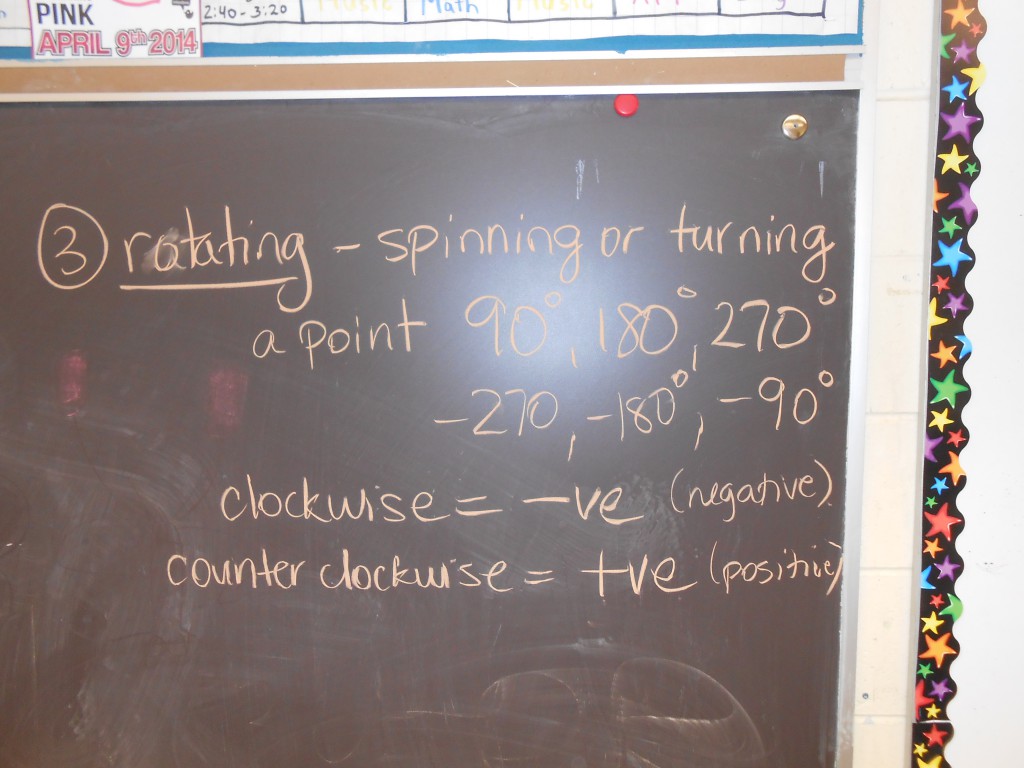 PINK
APRIL 9th 2014
2:40 - 3:20 Music Math Music
③ rotating - spinning or turning
a point 90°, 180°, 270°
-270, -180°, -90°
clockwise = -ve (negative)
counter clockwise = +ve (positive)